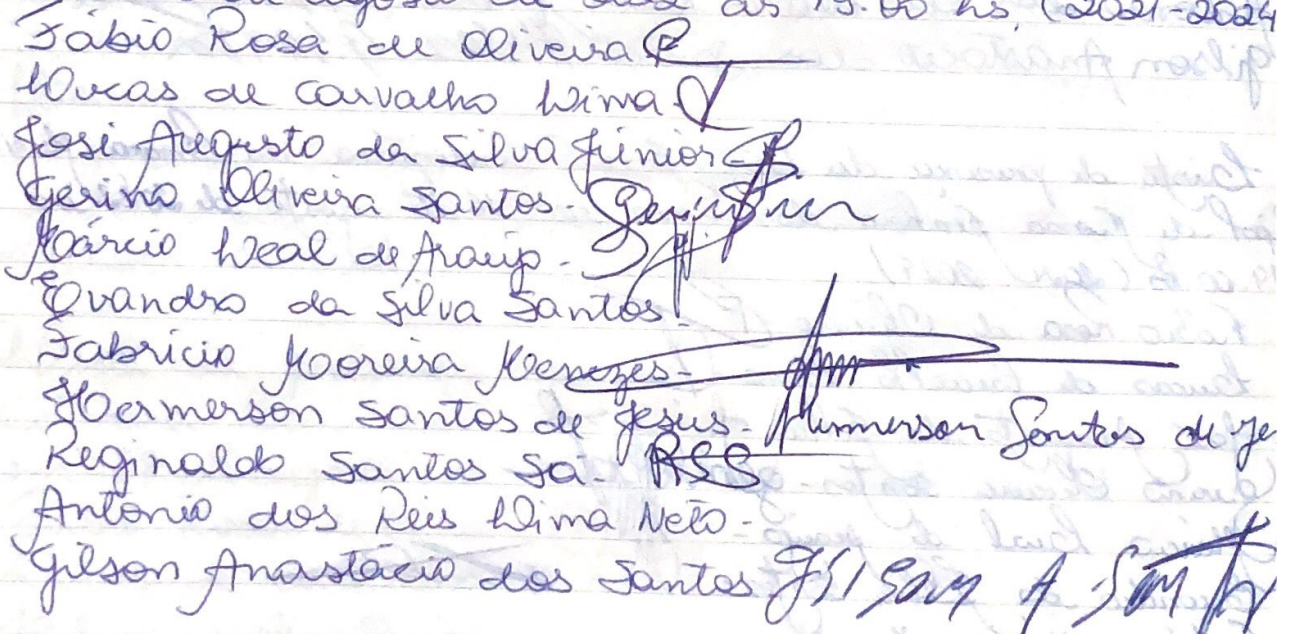 de agosto de 2022 às 19:00 hs, (2021-2024
Fábio Rosa de Oliveira
Lucas de Carvalho Lima
José Augusto da Silva Júnior
Gerino Oliveira Santos-
Márcio Leal de Araújo-
Evandro da Silva Santos-
Fabrício Moreira Menezes-
Hermerson Santos de Jesus- Hermerson Santos de Je
Reginaldo Santos Sá- RSS
Antonio dos Reis Lima Neto-
Gilson Anastácio dos Santos Gilson A Santos